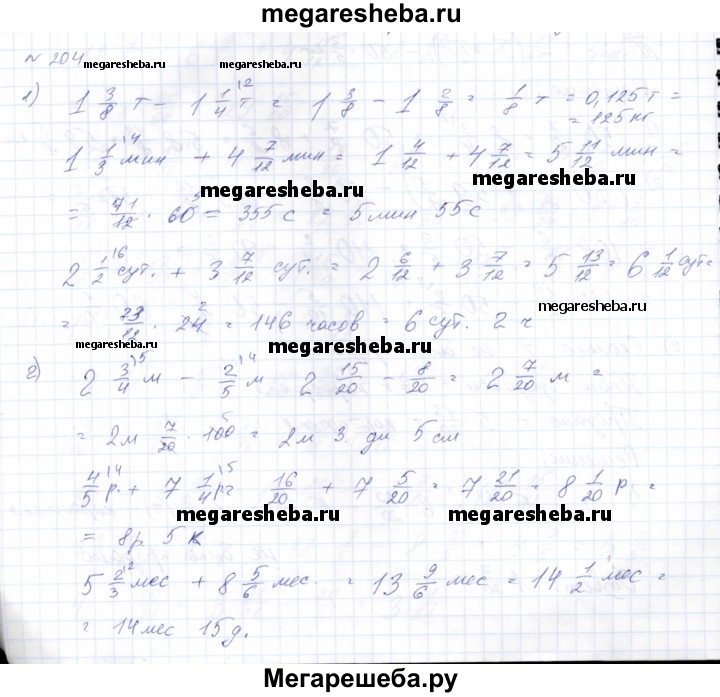 megaresheba.ru
N 204
megaresheba.ru megaresheba.ru
1) 1 3/8 т - 1 1/4 \2 т = 1 3/8 - 1 2/8 = 1/8 т = 0,125 т =
= 125 кг
1 1/3 \4 мин + 4 7/12 мин = 1 4/12 + 4 7/12 = 5 11/12 мин =
megaresheba.ru megaresheba.ru
= 71/12 · 60 5 = 355 с = 5 мин 55 с
2 1/2 \6 сут. + 3 7/12 сут. = 2 6/12 + 3 7/12 = 5 13/12 = 6 1/12 сут =
megaresheba.ru
= 73/12 · 24 2 = 146 часов = 6 сут. 2 ч
megaresheba.ru megaresheba.ru
2) 2 3/4 \5 м - 2/5 \4 м 2 15/20 - 8/20 = 2 7/20 м =
= 2м 7/20 · 100 5 = 2м 3 дм 5 см
4/5 \4 р. + 7 1/4 \5 р = 16/20 + 7 5/20 = 7 21/20 = 8 1/20 р. =
megaresheba.ru megaresheba.ru
= 8р 5 к
5 2/3 \2 мес + 8 5/6 мес. = 13 9/6 мес = 14 1/2 мес =
= 14 мес 15 д.
megaresheba.ru
Мегарешеба.ру